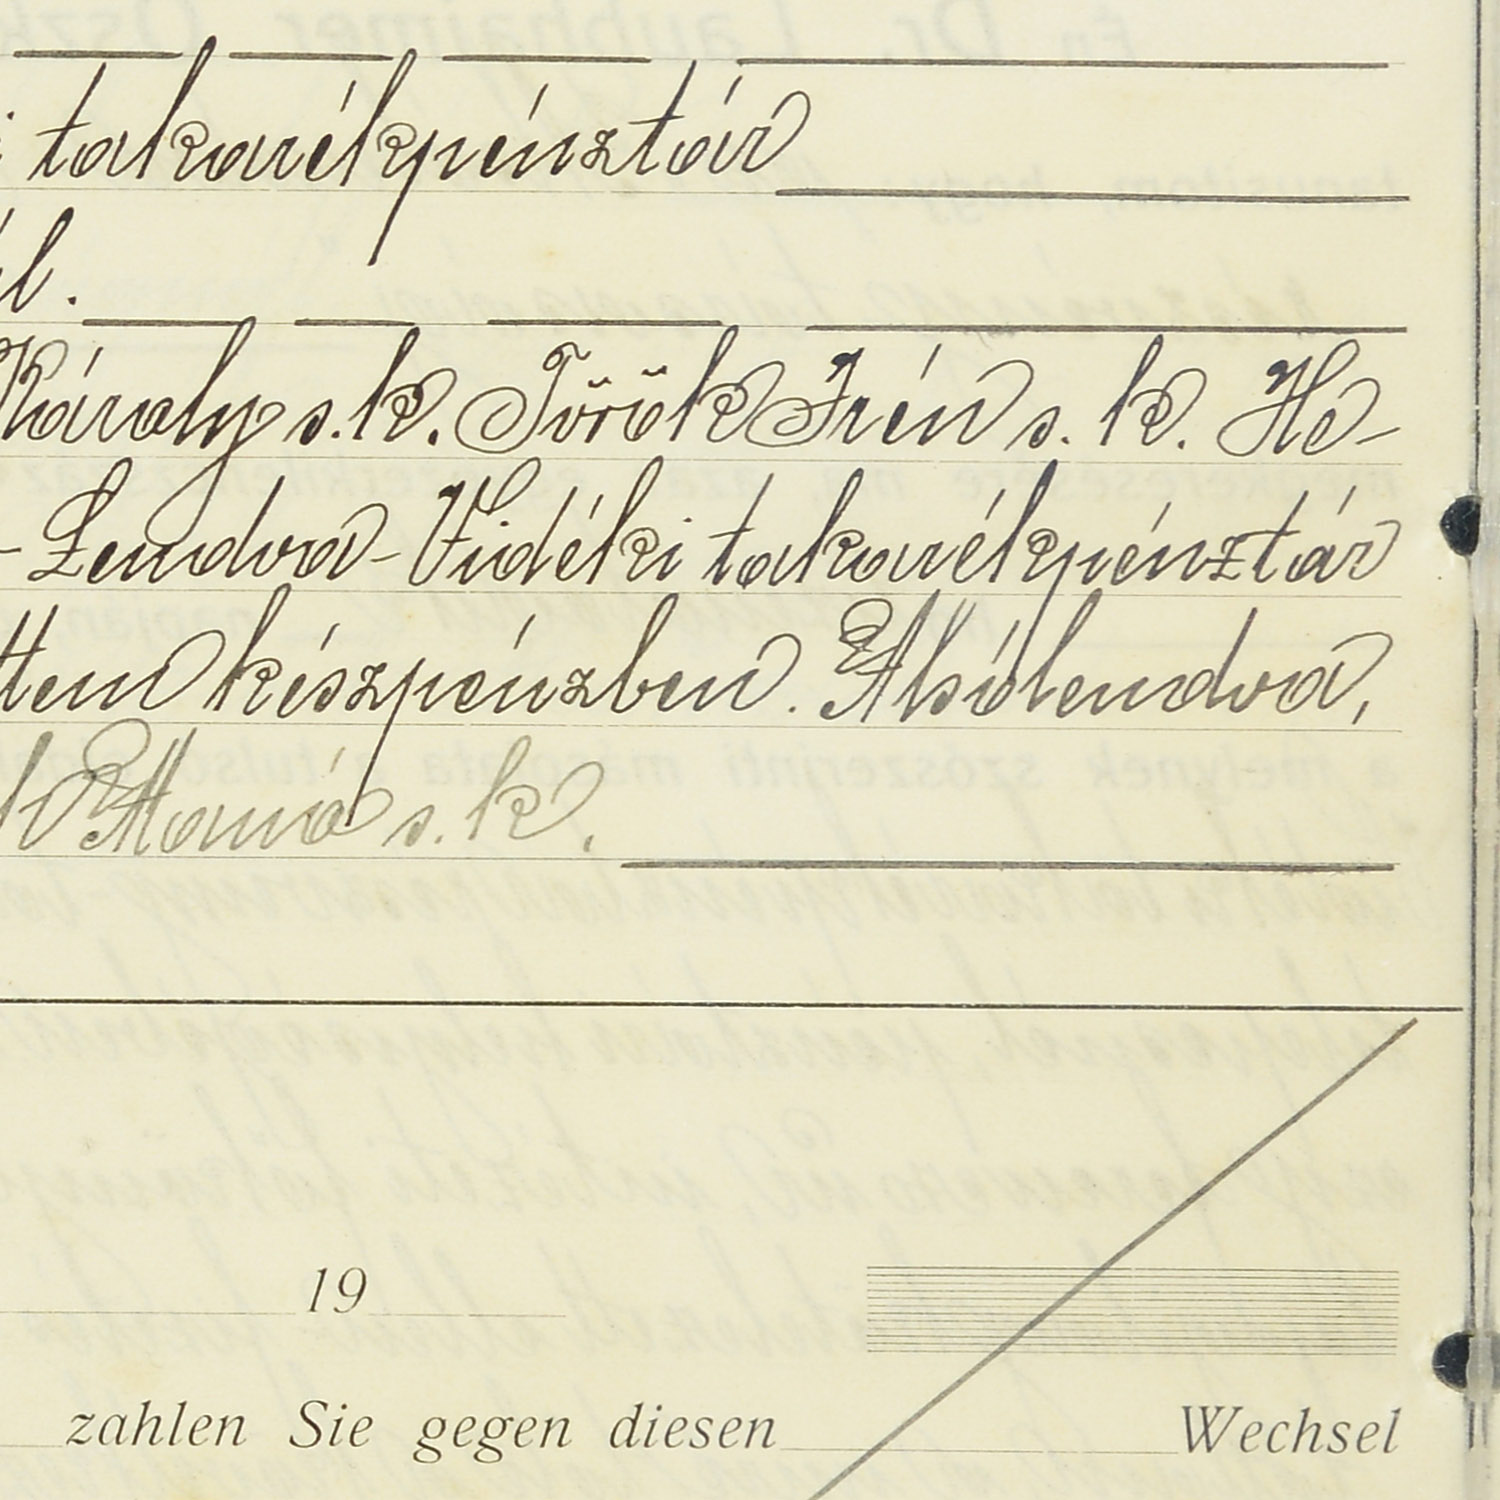 takarékpénztár
Károly s. k. Török Irén s. k. He-
- Lendva - Vidéki takarékpénztár
készpénzben. Alsólendva,
s. k.
19
zahlen Sie gegen diesen Wechsel